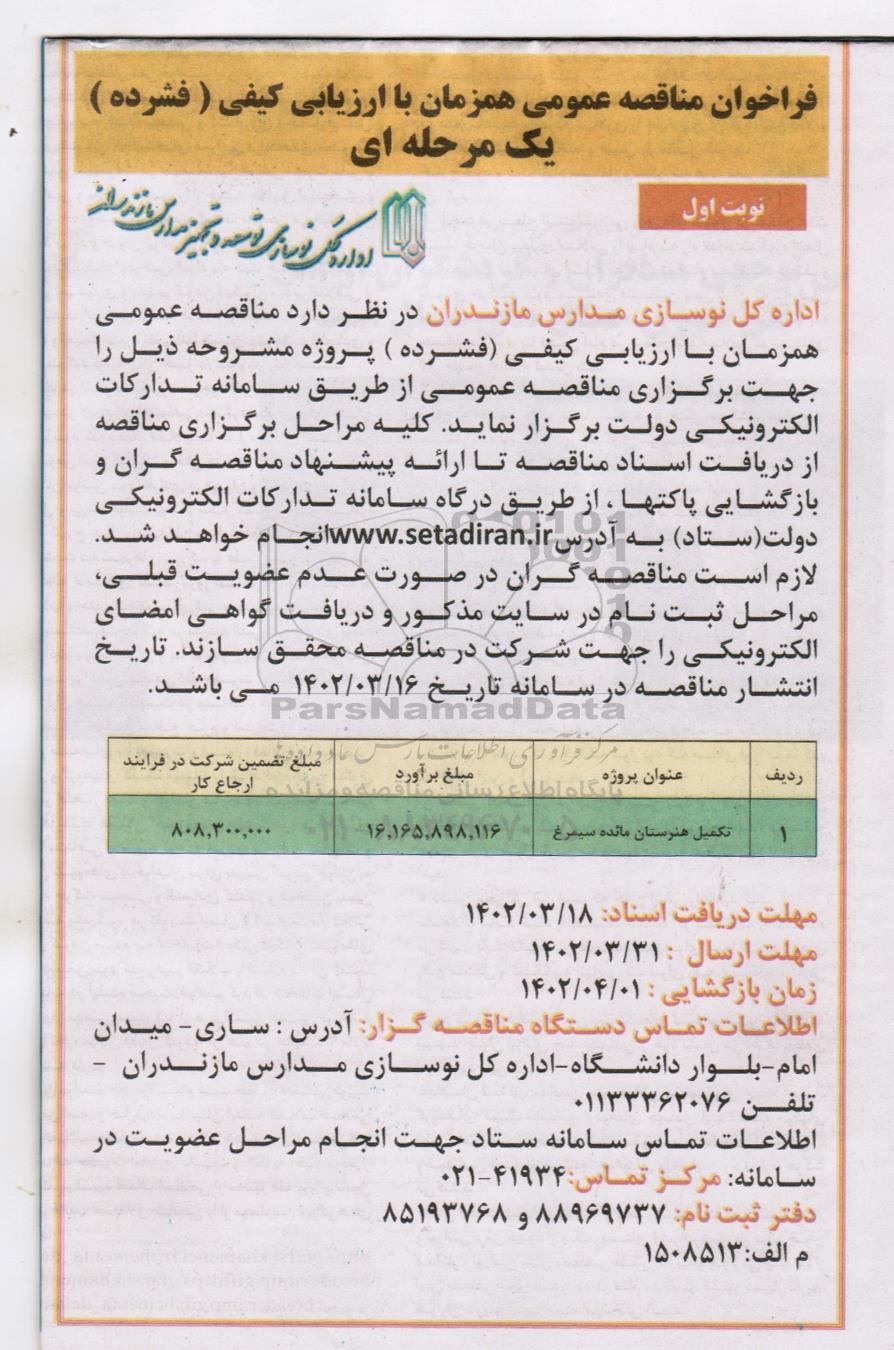 فراخوان مناقصه عمومی همزمان با ارزیابی کیفی ( فشرده )
یک مرحله ای
نوبت اول
اداره کل نوسازی، توسعه و تجهیز مدارس مازندران
اداره کل نوسازی مدارس مازندران در نظر دارد مناقصه عمومی
همزمان با ارزیابی کیفی (فشرده ) پروژه مشروحه ذیل را
جهت برگزاری مناقصه عمومی از طریق سامانه تدارکات
الکترونیکی دولت برگزار نماید. کلیه مراحل برگزاری مناقصه
از دریافت اسناد مناقصه تا ارائه پیشنهاد مناقصه گران و
بازگشایی پاکتها ، از طریق درگاه سامانه تدارکات الکترونیکی
دولت(ستاد) به آدرس www.setadiran.ir انجام خواهد شد.
لازم است مناقصه گران در صورت عدم عضویت قبلی،
مراحل ثبت نام در سایت مذکور و دریافت گواهی امضای
الکترونیکی را جهت شرکت در مناقصه محقق سازند. تاریخ
انتشار مناقصه در سامانه تاریخ ۱۴۰۲/۰۳/۱۶ می باشد.
ParsNamadData
مرکز فرآوری اطلاعات پارس نماد داده ها
ردیف عنوان پروژه مبلغ برآورد مبلغ تضمین شرکت در فرایند ارجاع کار
پایگاه اطلاع رسانی مناقصه و مزایده
۱ تکمیل هنرستان مائده سیمرغ ۱۶,۱۶۵,۸۹۸,۱۱۶ ۸۰۸,۳۰۰,۰۰۰
مهلت دریافت اسناد: ۱۴۰۲/۰۳/۱۸
مهلت ارسال : ۱۴۰۲/۰۳/۳۱
زمان بازگشایی : ۱۴۰۲/۰۴/۰۱
اطلاعات تماس دستگاه مناقصه گزار: آدرس : ساری- میدان
امام-بلوار دانشگاه-اداره کل نوسازی مدارس مازندران -
تلفن ۰۱۱۳۳۳۶۲۰۷۶
اطلاعات تماس سامانه ستاد جهت انجام مراحل عضویت در
سامانه: مرکز تماس:۴۱۹۳۴-۰۲۱
دفتر ثبت نام: ۸۸۹۶۹۷۳۷ و ۸۵۱۹۳۷۶۸
م الف:۱۵۰۸۵۱۳